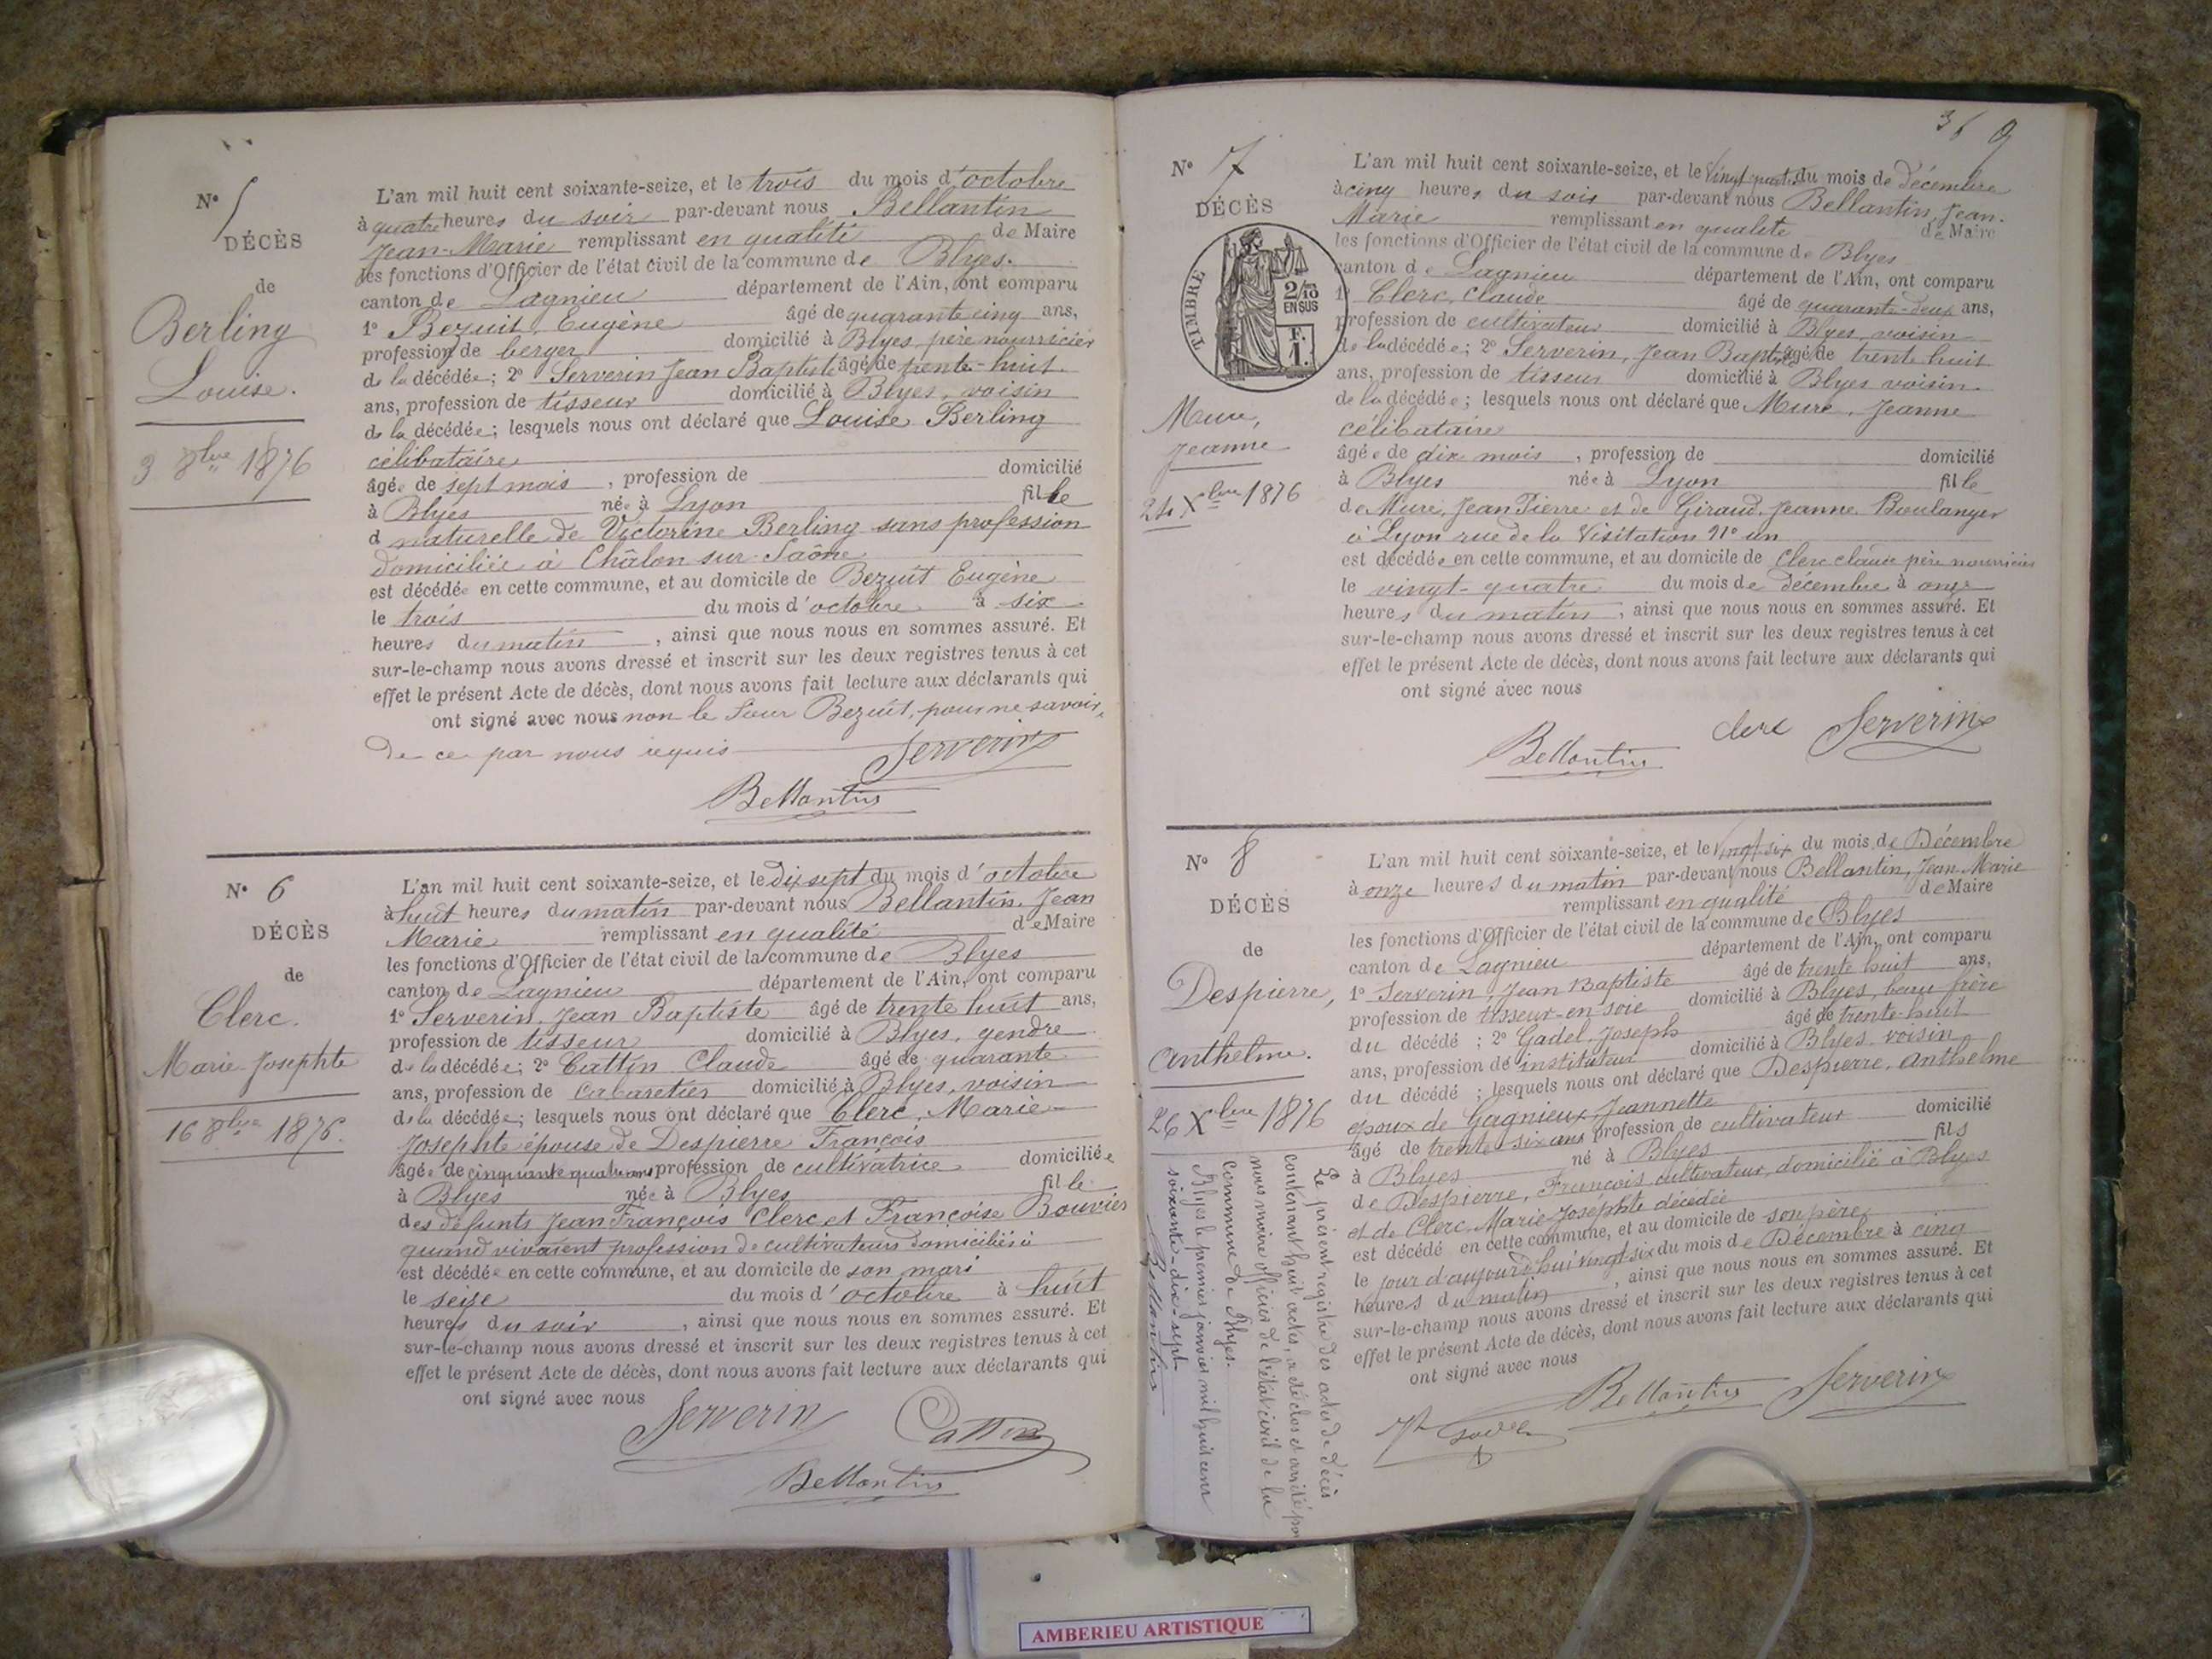 N° 5
DÉCÈS
de
Berling
Louise.
3 8bre 1876
L'an mil huit cent soixante-seize, et le trois du mois d'octobre
à quatre heures du soir par-devant nous Bellantin
Jean-Marie remplissant en qualité de Maire
les fonctions d'Officier de l'état civil de la commune de Blyes.
canton de Lagnieu département de l'Ain, ont comparu
1° Bezuit, Eugène âgé de quarante cinq ans,
profession de berger domicilié à Blyes, père nourricier
de la décédée; 2° Serverin Jean Baptiste âgé de trente-huit
ans, profession de tisseur domicilié à Blyes, voisin
de la décédée; lesquels nous ont déclaré que Louise Berling
célibataire
âgée de sept mois, profession de domicilié
à Blyes née à Lyon fille
d naturelle de Victorine Berling sans profession
domiciliée à Châlon sur Saône
est décédée en cette commune, et au domicile de Bezuit Eugène
le trois du mois d'octobre à six
heures du matin, ainsi que nous nous en sommes assuré. Et
sur-le-champ nous avons dressé et inscrit sur les deux registres tenus à cet
effet le présent Acte de décès, dont nous avons fait lecture aux déclarants qui
ont signé avec nous non le Sieur Bezuit, pour ne savoir,
de ce par nous requis
Serverin
Bellantin
N° 6
DÉCÈS
de
Clerc.
Marie Josephte
16 8bre 1876.
L'an mil huit cent soixante-seize, et le dix sept du mois d'octobre
à huit heures du matin par-devant nous Bellantin, Jean
Marie remplissant en qualité de Maire
les fonctions d'Officier de l'état civil de la commune de Blyes
canton de Lagnieu département de l'Ain, ont comparu
1° Serverin, Jean Baptiste âgé de trente huit ans,
profession de tisseur domicilié à Blyes, gendre
de la décédée; 2° Cattin Claude âgé de quarante
ans, profession de cabaretier domicilié à Blyes, voisin
de la décédée; lesquels nous ont déclaré que Clerc, Marie
Josephte épouse de Despierre François
âgée de cinquante quatre ans profession de cultivatrice domiciliée
à Blyes née à Blyes fille
des défunts Jean François Clerc et Françoise Bouvier
quand vivaient profession de cultivateurs domiciliés à
est décédée en cette commune, et au domicile de son mari
le seize du mois d'octobre à huit
heures du soir, ainsi que nous nous en sommes assuré. Et
sur-le-champ nous avons dressé et inscrit sur les deux registres tenus à cet
effet le présent Acte de décès, dont nous avons fait lecture aux déclarants qui
ont signé avec nous
Serverin Cattin
Bellantin
36 9
N° 7
DÉCÈS
TIMBRE
2/10
EN SUS
F.
1.
Mure,
Jeanne
24 Xbre 1876
L'an mil huit cent soixante-seize, et le vingt quatre du mois de décembre
à cinq heures du soir par-devant nous Bellantin, Jean-
Marie remplissant en qualité de Maire
les fonctions d'Officier de l'état civil de la commune de Blyes
canton de Lagnieu département de l'Ain, ont comparu
1° Clerc, Claude âgé de quarante-deux ans,
profession de cultivateur domicilié à Blyes, voisin
de la décédée; 2° Serverin, Jean Baptiste âgé de trente huit
ans, profession de tisseur domicilié à Blyes voisin
de la décédée; lesquels nous ont déclaré que Mure, Jeanne
célibataire
âgée de dix mois, profession de domicilié
à Blyes née à Lyon fille
de Mure, Jean Pierre et de Giraud, Jeanne Boulanger
à Lyon rue de la Visitation N° un
est décédée en cette commune, et au domicile de Clerc claude père nourricier
le vingt-quatre du mois de décembre à onze
heures du matin, ainsi que nous nous en sommes assuré. Et
sur-le-champ nous avons dressé et inscrit sur les deux registres tenus à cet
effet le présent Acte de décès, dont nous avons fait lecture aux déclarants qui
ont signé avec nous
Bellantin clerc Serverin
N° 8
DÉCÈS
de
Despierre,
Anthelme.
26 Xbre 1876
L'an mil huit cent soixante-seize, et le vingt six du mois de Décembre
à onze heures du matin par-devant nous Bellantin, Jean Marie
remplissant en qualité de Maire
les fonctions d'Officier de l'état civil de la commune de Blyes
canton de Lagnieu département de l'Ain, ont comparu
1° Serverin, Jean Baptiste âgé de trente huit ans,
profession de tisseur-en-soie domicilié à Blyes, beau frère
du décédé; 2° Gadel, Joseph âgé de trente-huit
ans, profession de instituteur domicilié à Blyes, voisin
du décédé; lesquels nous ont déclaré que Despierre, Anthelme
époux de Gagnieux, Jeannette
âgé de trente-six ans profession de cultivateur domicilié
à Blyes né à Blyes fils
de Despierre, François cultivateur, domicilié à Blyes
et de Clerc Marie Joséphte décédée
est décédé en cette commune, et au domicile de son père,
le jour d'aujourd'hui vingt-six du mois de Décembre à cinq
heures du matin, ainsi que nous nous en sommes assuré. Et
sur-le-champ nous avons dressé et inscrit sur les deux registres tenus à cet
effet le présent Acte de décès, dont nous avons fait lecture aux déclarants qui
ont signé avec nous
Bellantin Serverin
Gadel
Le présent registre des actes de décès
contenant huit actes, a été clos et arrêté par
nous maire officier de l'état civil de la
commune de Blyes.
Blyes le premier janvier mil huit cent
soixante-dix-sept
Bellantin
AMBERIEU ARTISTIQUE